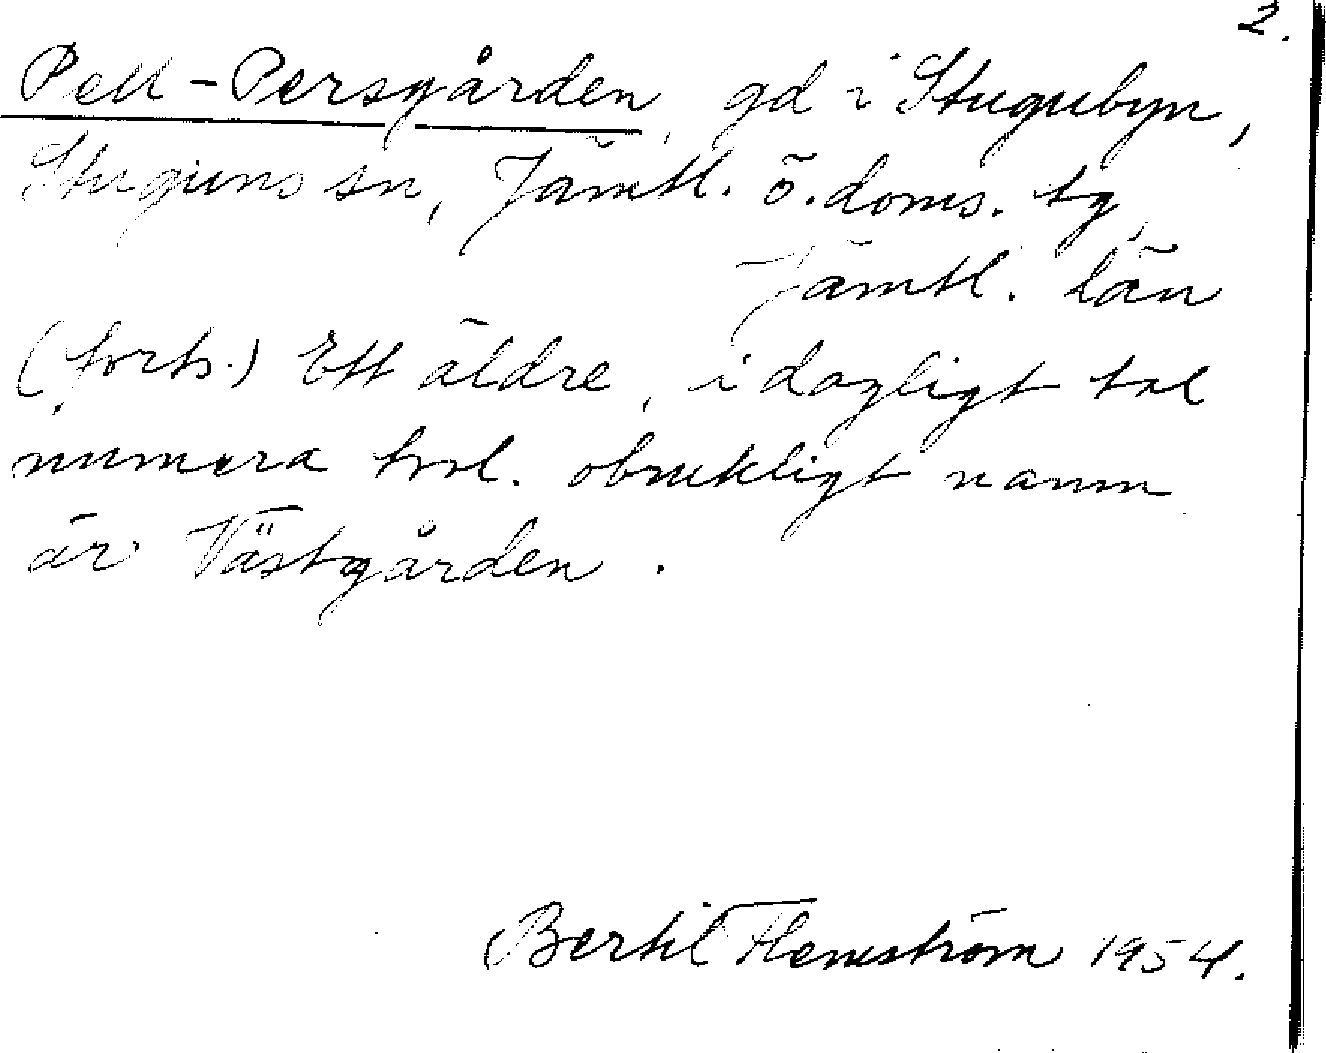 2.
Pell-Persgården, gd i Stugubyn,
Stuguns sn, Jämtl. ö. doms. tg,
Jämtl. län
(forts.) Ett äldre, i dagligt tal
numera tvvl. obrukligt namn
är Västgården.
Bertil Flemström 1954.